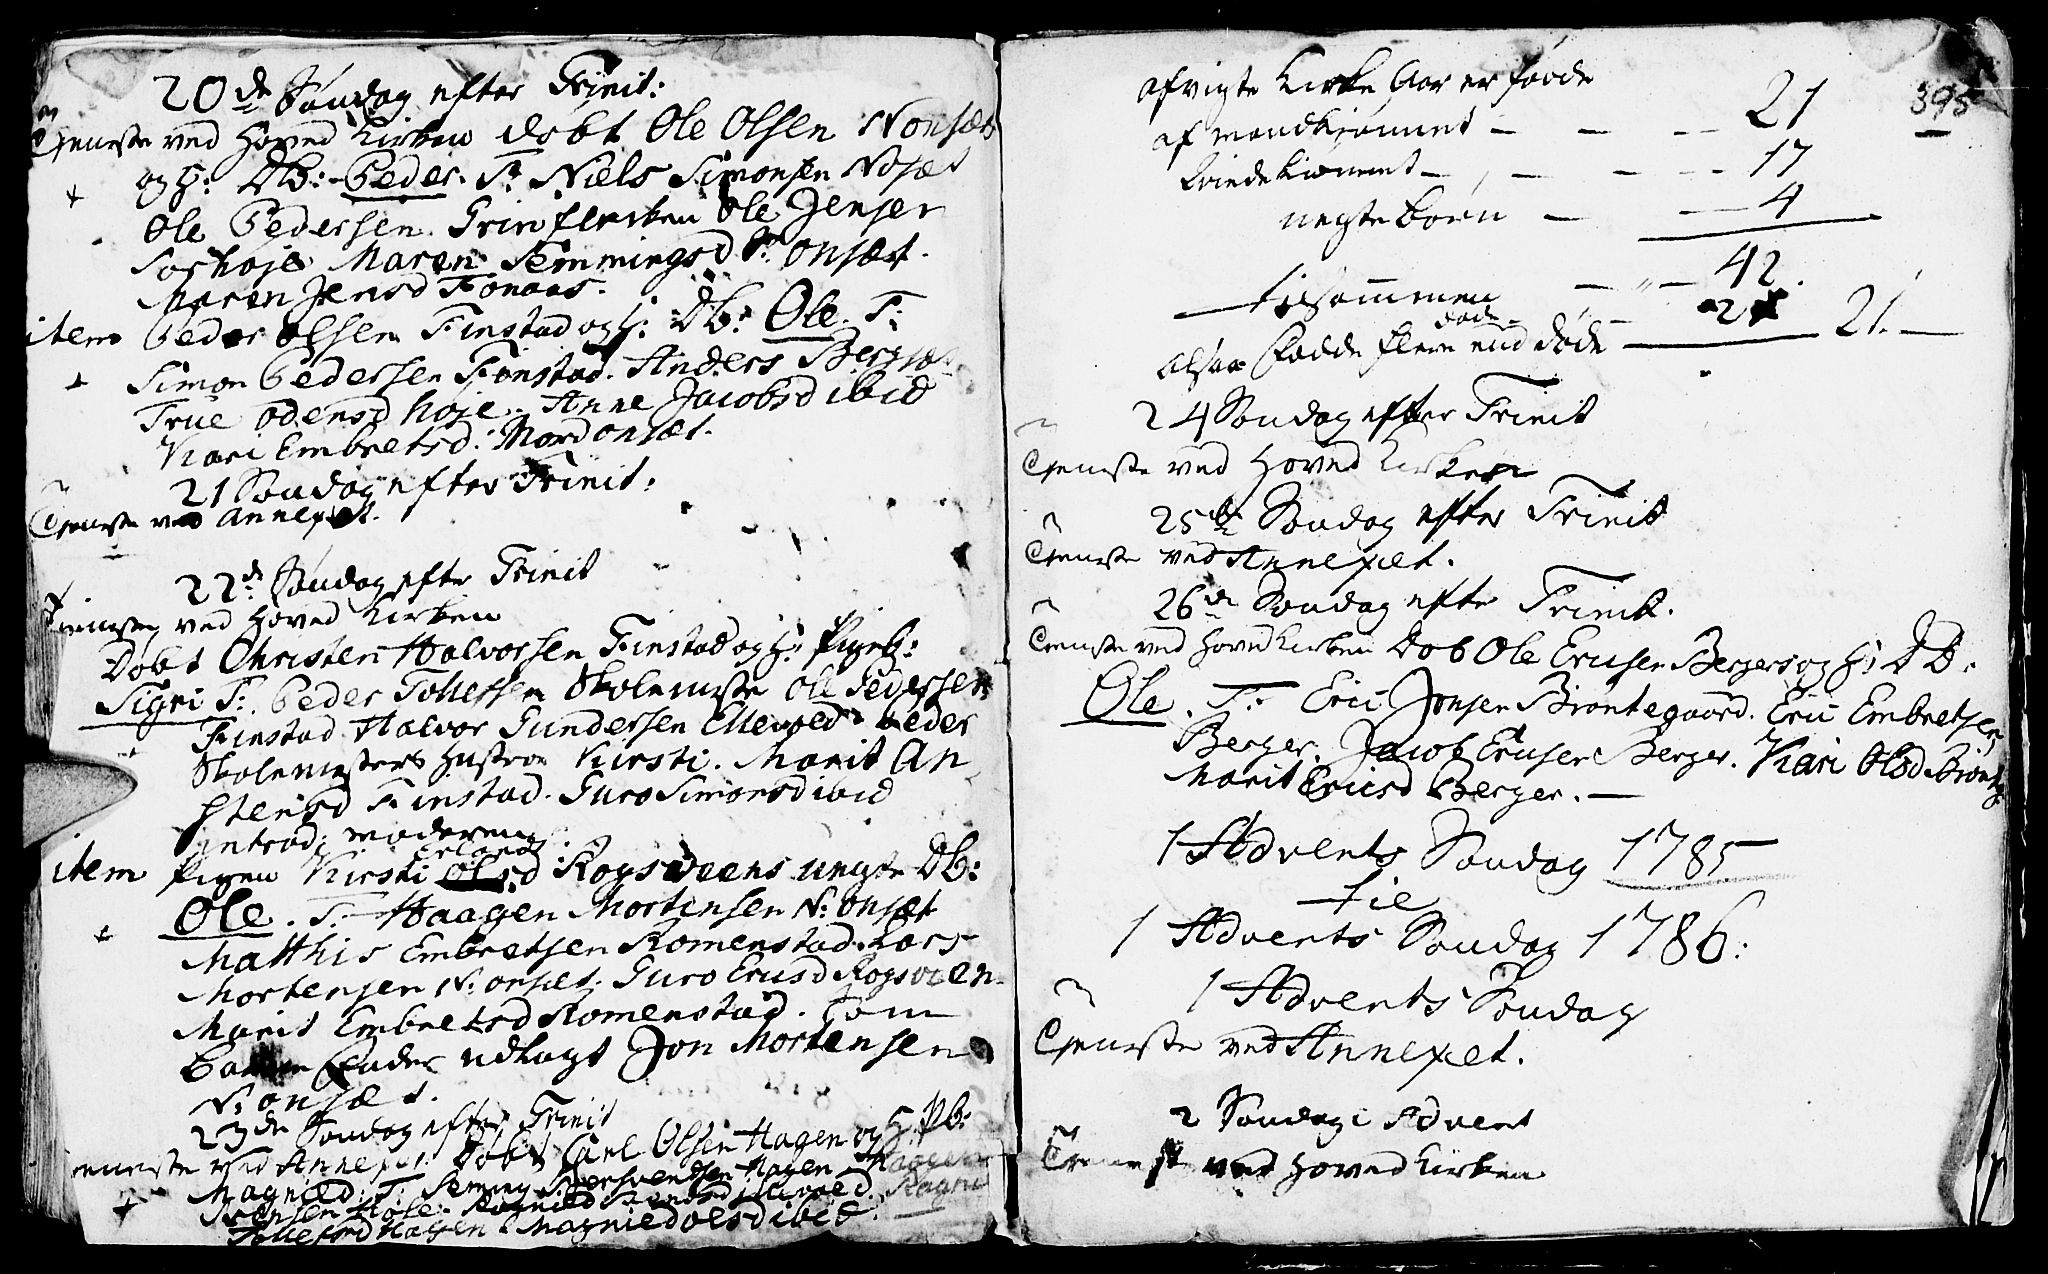 20de Søndag efter Trinit:
Tieneste ved Hoved Kirken Døbt Ole Olsen Nonsæt
og H: DB: Peder. T: Niels Simonsen Nosæt
Ole Pedersen. Ole Jensen
Maren Semmingsd N: onsæt.
Maren Jensd Fonaas.
item Peder Olsen Finstad og H: Db: Ole. T:
Simon Pedersen Finstad. Anders
True Odensd Høje. Anne Jacobsd ibid
Kari Embretsd. Mordonsæt.
21 Søndag efter Trinit:
Tieneste ved Annexet.
22de Søndag efter Trinit
Tieneste ved Hoved Kirken
Døbt Christen Halvorsen Finstad og H: Pigeb:
Sigri T: Peder Tollefsen Skolemester Ole Pedersen
Finstad Halvor Gundersen Ellevold. Peder
Skolemesters Hustroe Kirsti. Marit An
stensd Finstad. Guro Simonsd ibid
introd: moderen
Erlands
item Pigen Kirsti Olsd Rogsveens uegte Db:
Ole. T: Haagen Mortensen N: onsæt
Matthis Embretsen Romenstad. Lars
Mortensen N: onsæt. Guro Ericsd Rogsveen.
Marit Embretsd Romenstad. Som
Barne Fader udlagt Jon Mortensen
N: onsæt.
23de Søndag efter Trinit
Tieneste ved Annexet Døbt Carl Olsen Hagen og H. Pb:
Magnied: T: Hagen
Hagen Magnied Olsd ibid.
395
afvigte Kirke Aar er fødde
af mandkiønnet — — — 21
Qvindekiønnet — — — 17
uegte Børn — — 4
tilsammen — — 42.
døde — 21
altsaa fødde flere end døde — 21. —
24 Søndag efter Trinit
Tieneste ved Hoved Kirken
25de Søndag efter Trinit
Tieneste ved Annexet.
26de Søndag efter Trinit.
Tieneste ved Hoved Kirken Døb Ole Ericsen Bergers og H: DB:
Ole. T: Eric Jonsen Brøntegaard. Eric Embretsen
Berger. Jacob Ericsen Berger. Kari Olsd
Marit Ericsd Berger. —
1 Advents Søndag 1785
til
1 Advents Søndag 1786:
1 Advents Søndag
Tieneste ved Annexet.
2 Søndag i Advent
Tieneste ved Hoved Kirken